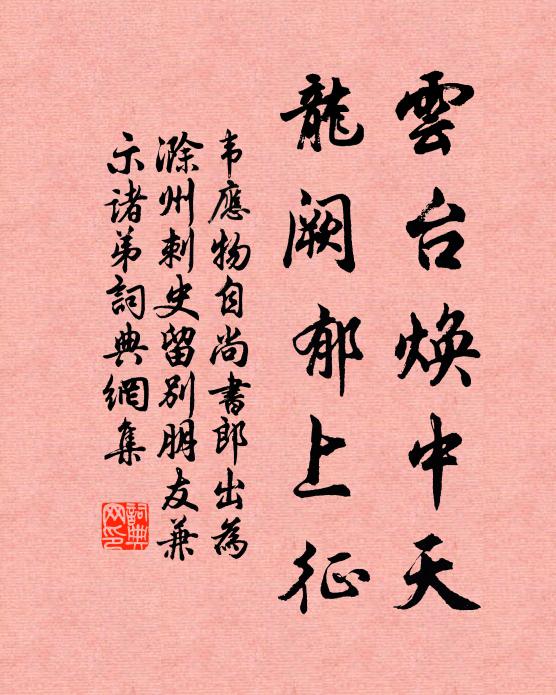 雲台煥中天
龍阙郁上征
韦應物自尚書郎出為
滁州刺史留别朋友兼
示诸弟詞典網集
詞典
网印